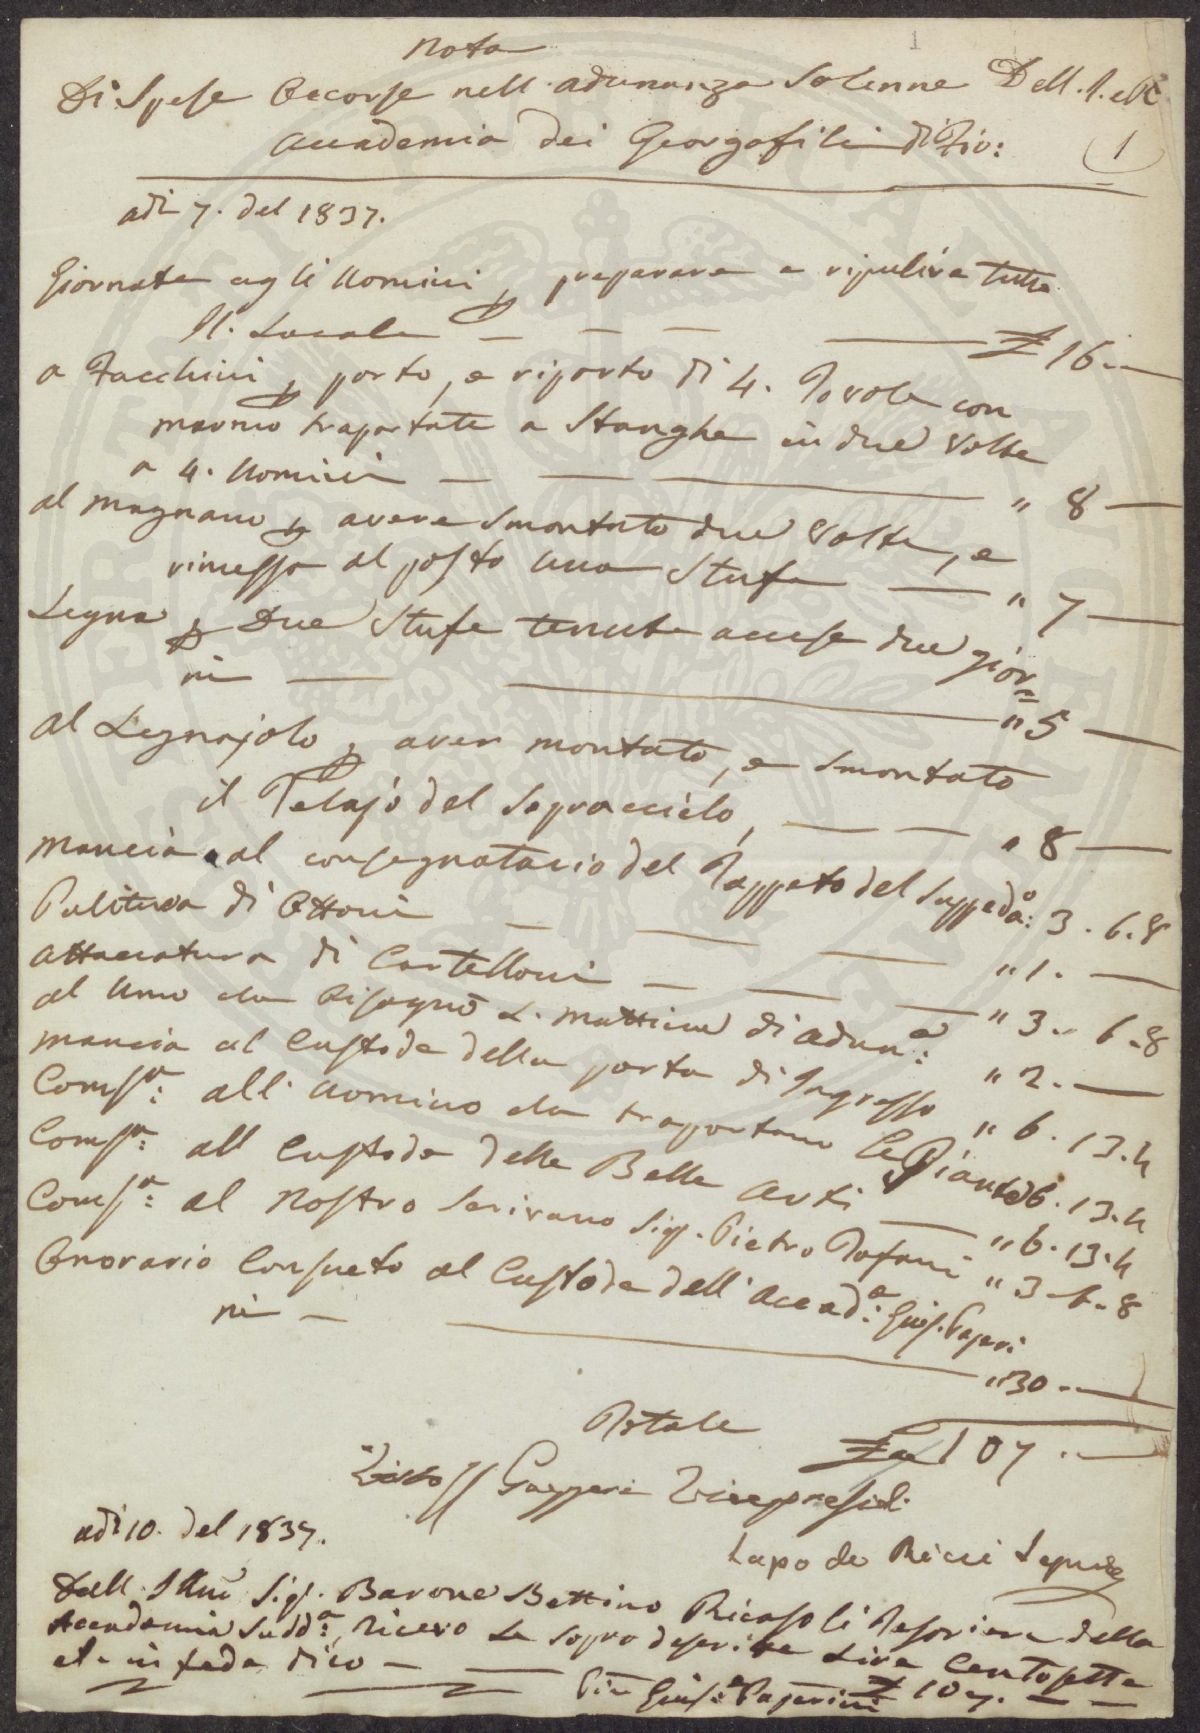 Nota
Di Spese Occorse nell adunanza Solenne Dell. I. e R.
Accademia dei Georgofili di Fir:
1
adi 7. del 1837.
Giornate agli Uomini p preparare e ripulire tutto
Il. Locale £ 16.
a Facchini p porto, e riporto di 4. Tavole con
marmo trasportate a Stanghe in due Volte
a 4. Uomini " 8
al Magnano p avere Smontato due Volte, e
rimesso al posto una Stufa " 7
Legna p Due Stufe tenute accese due gior=
ni " 5
al Legnajolo p aver montato, e Smontato
il Telajo del Sopraccielo, " 8
Mancia al consegnatario del Tappeto del Supped:o 3. 6. 8
Pulitura di Ottoni " 1.
Attaccatura di Cartelloni " 3. 6. 8
al Uomo da Bisogno L. mattina di adun:a " 2.
mancia al Custode della porta di Ingresso " 6. 13. 4
Comsa: all' Uomino da trasportare le Piante 6. 13. 4
Comsa: all Custode delle Belle Arti " 6. 13. 4
Comsa: al Nostro Scrivano Sig. Pietro Tofani " 3. 6. 8
Onorario Consueto al Custode dell' Accad:a Gius. Pajeri
ni " 30.
Totale £ 107.
Visto Gazzeri Vicepresid.
Lapo de Ricci
adi 10. del 1837.
Dall. Illmo Sig. Barone Bettino Ricasoli Tesoriere della
Accademia Sudd:a, Ricevo Le sopra descritte Lire Centosette
e in fede dico £ 107.
Gius:e Pajerini